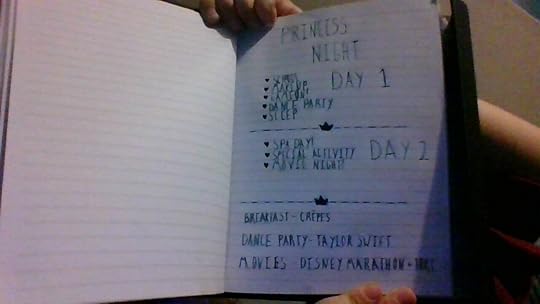 PRINCESS
NIGHT
DAY 1
♥ MAKEUP
♥ DANCE PARTY
♥ SLEEP
DAY 2
♥ SPA DAY!
♥ SPECIAL ACTIVITY
♥ MOVIE NIGHT!
BREAKFAST - CRÊPES
DANCE PARTY - TAYLOR SWIFT
MOVIES - DISNEY MARATHON +